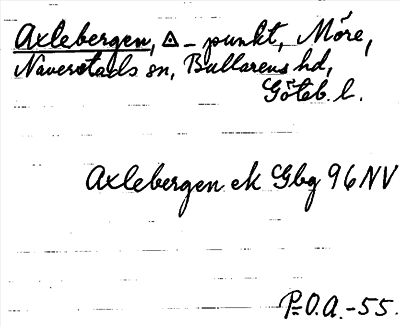 Axlebergen, △ - punkt, Möre,
Naverstads sn, Bullarens hd,
Göteb. l.
Axlebergen ek Gbg 96 NV
P-O.A.-55.